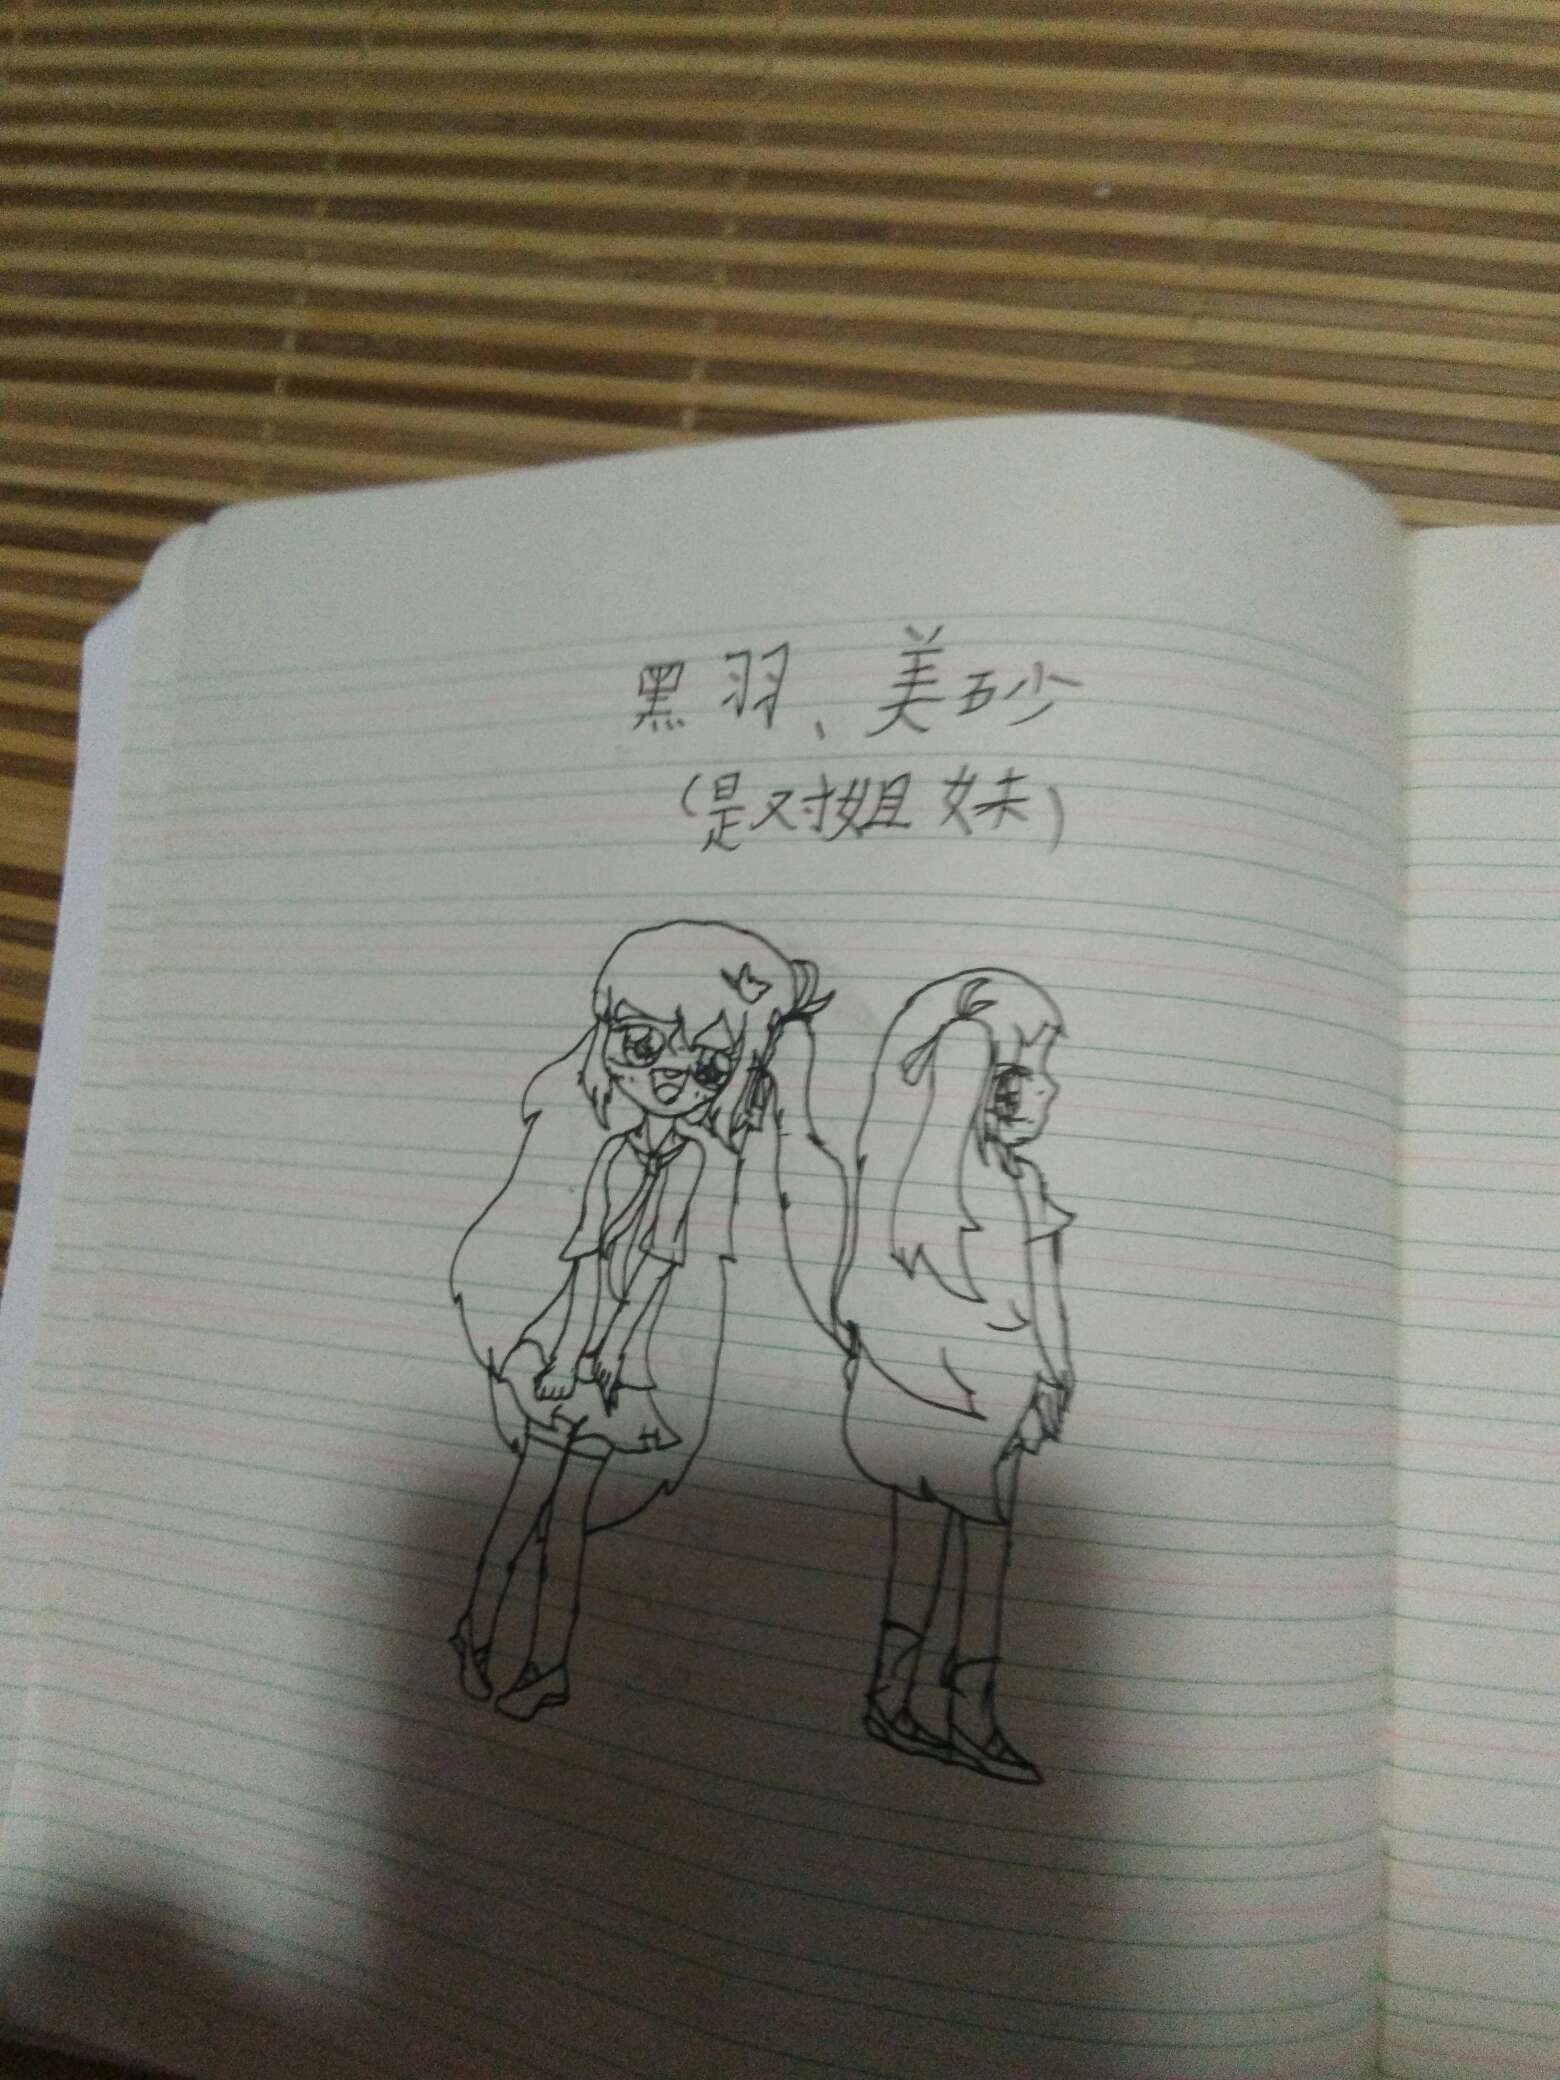 黑羽、美砂
（是对姐妹）